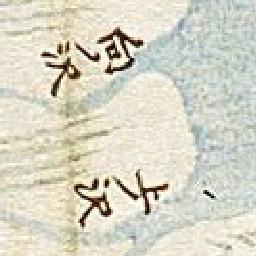 向ノ沢
上ノ沢